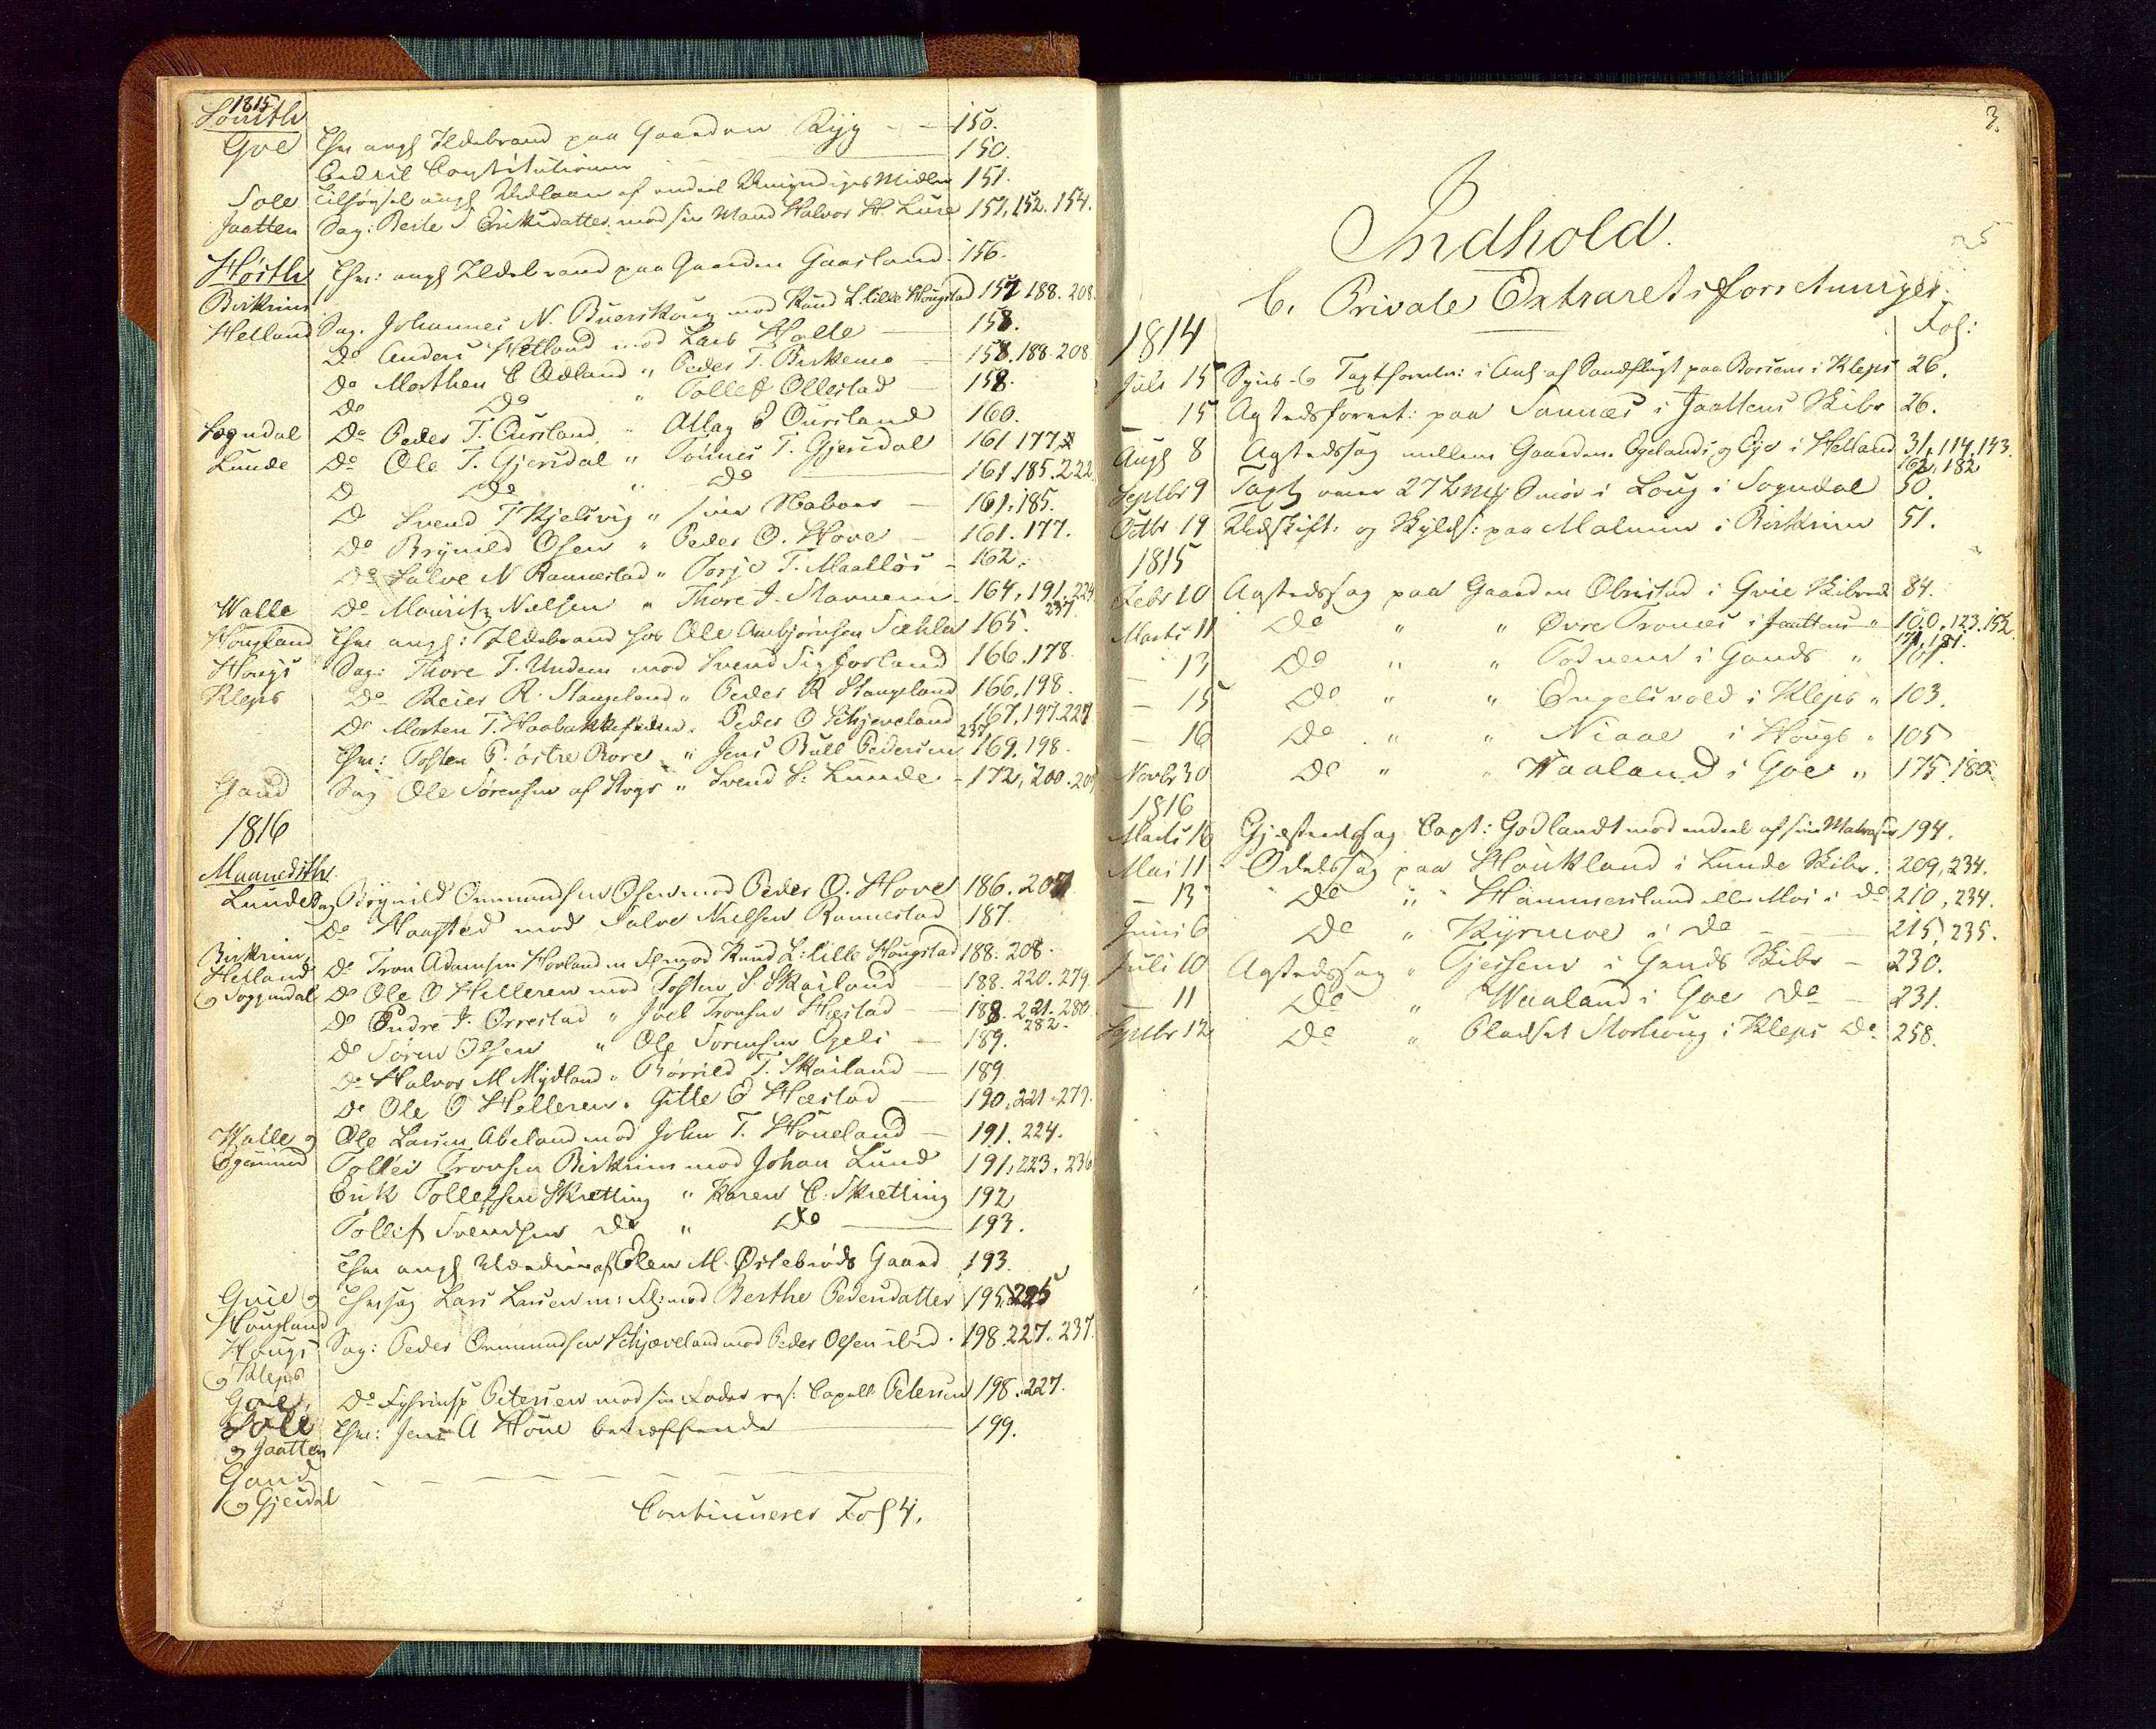 1815
Somth
Goe Thv angl Ildebrand paa Gaarden Ryg - - 150.
Constitutionen 150.
Sole angl Udlaan af endeel Umyndiges Midler 151.
Jaatten Sag: Berte Eriksdatter mod sin Mand Halvor H. Lure 151, 152. 154.
Høstth Thv: angl Ildebrand paa Gaarden Gaasland 156.
Birkrim
Helland Sag. Johannes N. Buerskoug mod Knud L. lille Hougstad 157 188. 208.
Do Anders Hetland mod Lars Halle 158.
Do Morthen C Ødland " Peder T. Birkemo 158. 188. 208
Do Do " Tollef Ollestad 158.
Sogndal Do Peder T. Eursland " Atlag E Eursland 160.
Lunde Do Ole T. Gjersdal " Tønnes T. Gjersdal 161 177.
D Do " Do 161. 185. 222
D Svend T Kjelsvig " sine Naboer 161. 185.
Do Brynild Osen " Peder O. Hove 161. 177.
Do Salve N Rannestad " Torje T. Maalløs 162.
Walle Do Mauritz Nielsen " Thore J. Stavnem 164, 191. 224
237
Hougland Thv angl: Ildebrand hos Ole Anbjørnsen Sæhle 165.
Hougs Sag: Thore T. Undem mod Svend Sigfosland 166. 178.
Klepis Do Reier R. Stangeland " Peder R Stangeland 166. 198.
Do Morten T. Haabakken " Peder O Schjeveland 167. 197. 227
237
Thv: Tosten P. østre Rore " Jens Bull Pedersen 169. 198.
Gand Sag Ole Sørensen af Hogs " Svend S: Lunde 172, 200. 209
1816
Maanedsth.
Lunde Sag Brynild Ommundsen Osen mod Peder O. Hove 186. 207
Do Haasted mod Salve Nielsen Rannestad 187.
Birkrim
Helland Do Tron Adamsen Hovland m fl mod Knud L: lille Hougstad 188. 208.
og Soggendal Do Ole O Helleren mod Tosten S. Skailand 188. 220. 279
Do Endre J. Orrestad " Joel Tronsen Hæstad 188. 221. 280
282.
Do Søren Olsen " Ole Sørensen Egeli 189.
Do Halvor M Mydland " Børrild T. Skailand 189
Do Ole O Helleren " Gitle E Hæstad 190. 221. 279.
Walle og Ole Larsen Abeland mod John T. Høueland 191. 224.
Egersund Tollev Tronsen Birkrim mod Johan Lund 191. 223. 236
Erik Tollefsen Skretting " Karen E. Skretting 192
Tollef Svendsen do " Do 193.
Thv angl Vurdering af Elen M. Østebrøds Gaard 193.
Qvie og Thvsag Lars Larsen m: fl: mod Berthe Pedersdatter 195. 225
Hougland
Hougs Sag: Peder Ommundsen Schjæveland mod Peder Olsen ibid. 198. 227. 237.
og Klepis
Goe, Do Petersen mod sin Fader res: Capell Petersen 198. 227.
Sole Thv: Jens A Høue betræffende 199.
og Jaatten
Gand
og Gjesdal
Continueres Fol 4.
3.
Indhold.
C. Private Extraretsforretninger.
1814 Fol:
Juli 15 Syns- og Taxtforretn: i Anl: af Sandflugt paa Borsem i Klepis 26.
— 15 Aastedsforret: paa Somæs i Jaattens Skibr 26.
Augl 8 Aastedssag mellem Gaardene Egelands og Eye i Helland 31, 114. 143.
162, 182
Septbr 9 Taxt over 27 Smør i Loug i Sogndal 50.
Octbr 19 Udskift. og Skylds: paa Malmem i Birkrim 51.
1815
Febr 10 Aastedssag paa Gaarden Obrestad i Qvie Skibrede 84.
Marts 11 Do " " Øvre Tronæs i Jaattens " 100. 123. 152
171, 181.
— 13 Do " " Todnem i Gands " 101.
— 15 Do " " Engelsvold i Klepis " 103.
— 16 Do " " Niaae i Hougs " 105
Novbr 30 Do " " Waaland i Goe " 175. 180
1816
Marts 16 Gjæsteretssag Capt: Godlandt mod endeel af sine Matroser 194.
Mai 11 Odelssag paa Houkland i Lunde Skibr. 209, 234.
— 13 Do " Hammersland eller Moi i do 210, 234.
Juni 6 Do " Kyrmoe i do 215, 235.
Juli 10 Aastedssag " Tjessem i Gands Skibr 230.
— 11 Do " Waaland i Goe do 231.
Septbr 12 Do " Pladset Storhoug i Klepis do 258.